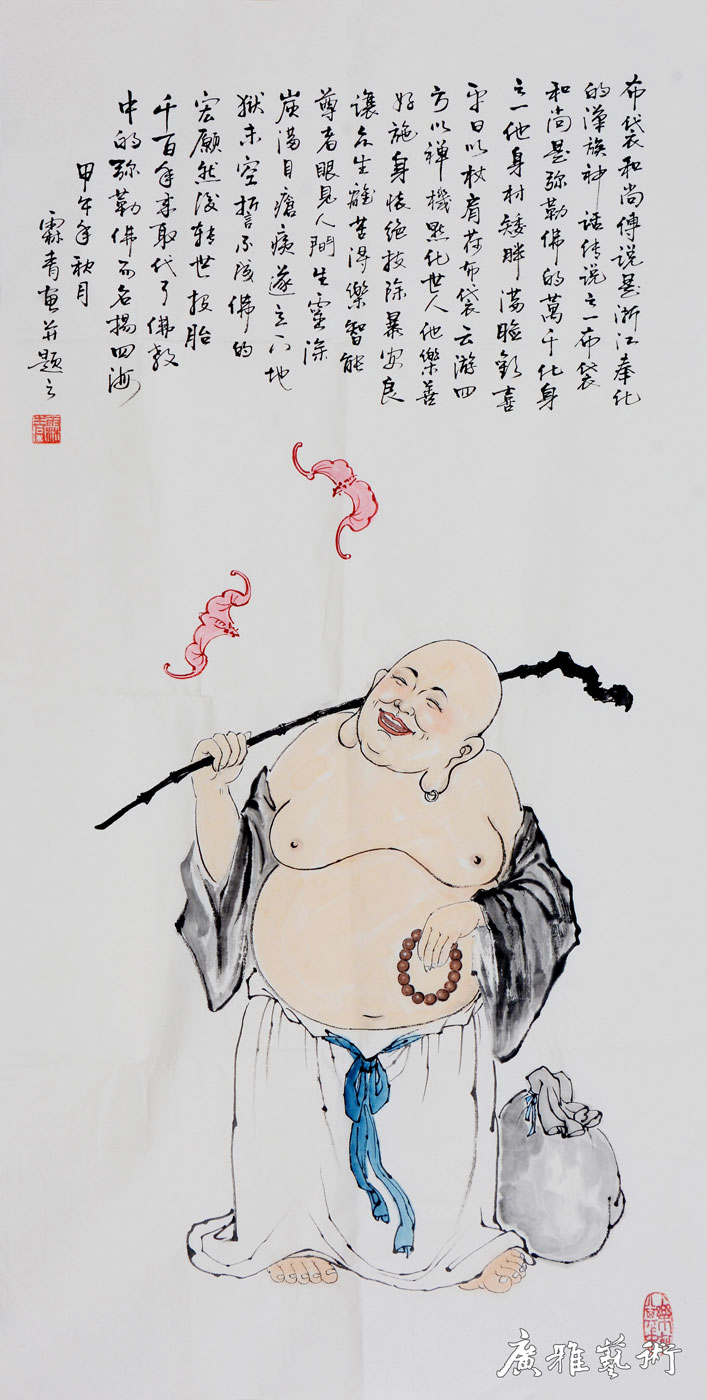 布袋和尚傳说是浙江奉化
的漢族神话传说之一布袋
和尚是弥勒佛的萬千化身
之一他身材矮胖满脸歡喜
平日以杖肩荷布袋云游四
方以禅機點化世人他樂善
好施身怀绝技除暴安良
讓众生離苦得樂智能
尊者眼見人間生靈涂
炭满目瘡痍遂立下地
狱未空誓不成佛的
宏願然後转世投胎
千百年来取代了佛教
中的弥勒佛而名揚四海
甲午年秋月
霖青画并题之
廣雅藝術